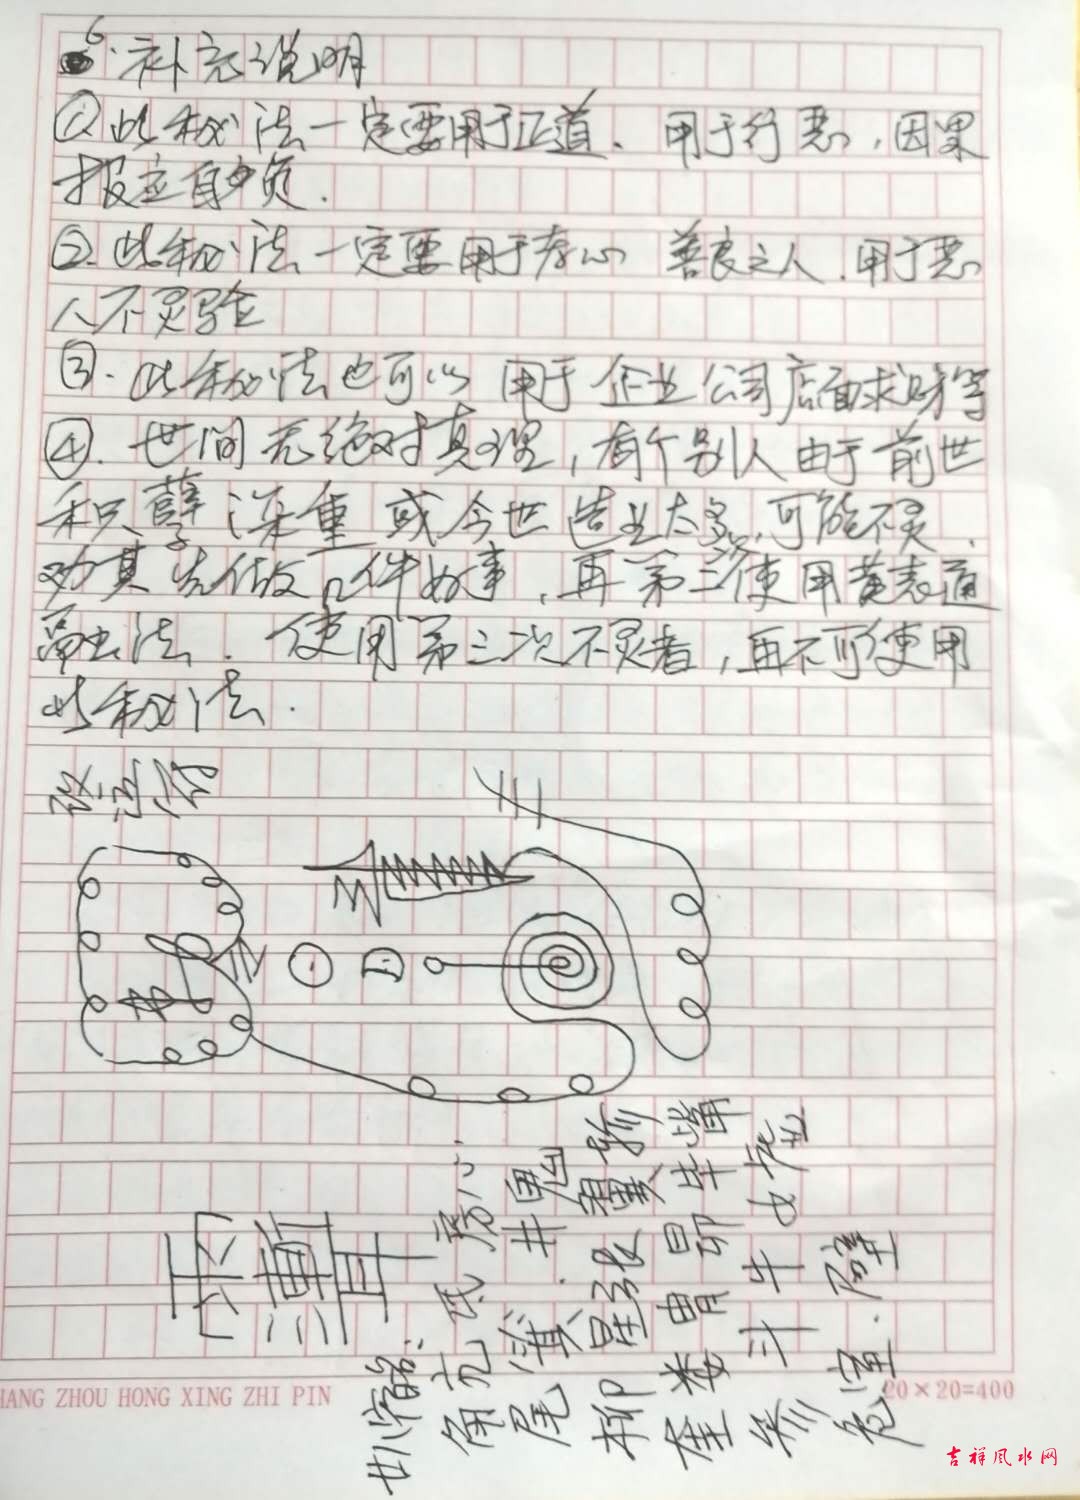 6.补充说明
①此秘法一定要用于正道.用于行恶,因果
报应自负.
②.此秘法一定要用于存心 善良之人.用于恶
人不灵验
③.此秘法也可以用于企业公司店面求财等
④.世间无绝对真理,有个别人由于前世
积孽深重或今世造业太多,可能不灵.
劝其先做几件好事,再第二次使用黄表通
法.使用第三次不灵者,再不可使用
此秘法.
改运符
廿八宿:
角亢氐房心.
尾箕.井鬼
柳星张翼轸
奎娄胃昴毕觜
参 斗牛女
危室.壁
HANG ZHOU HONG XING ZHI PIN
20×20=400
吉祥风水网